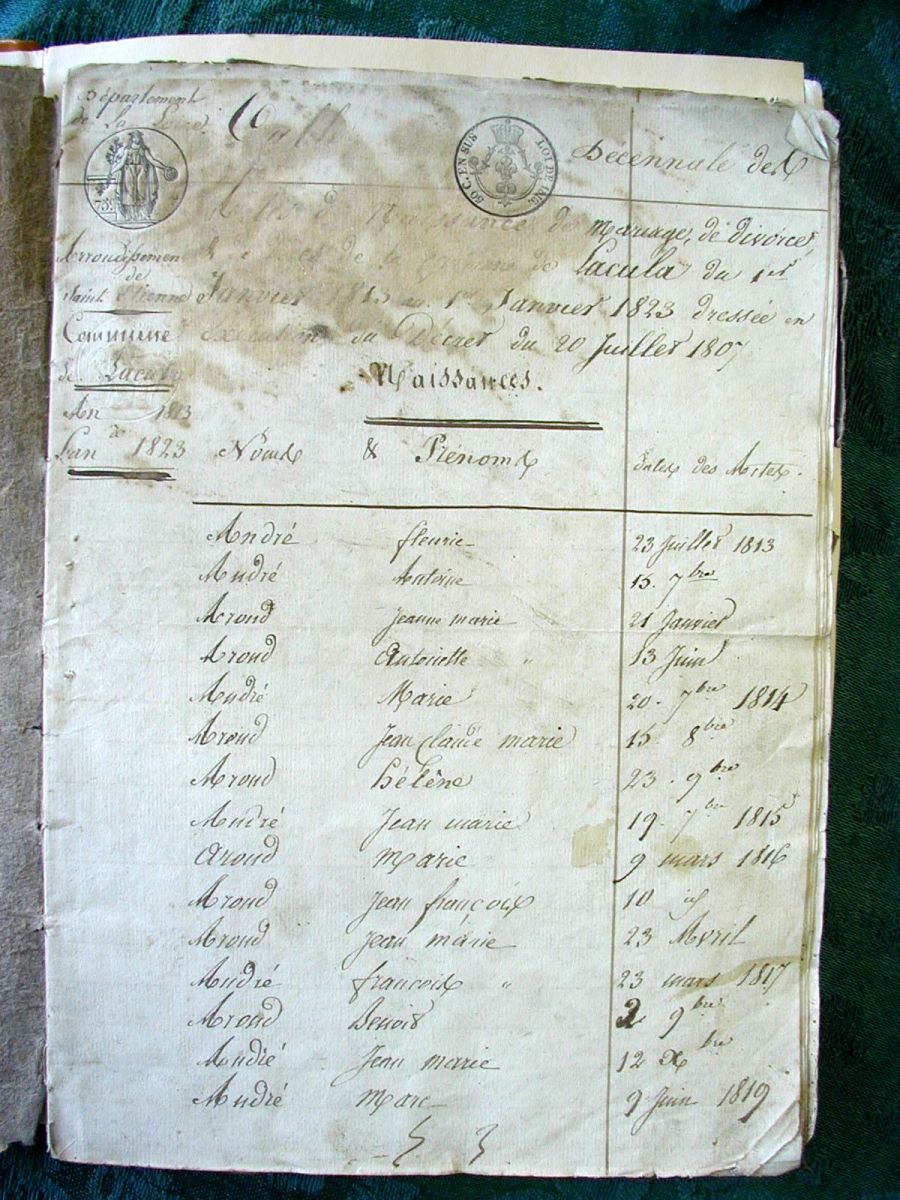 Département
de La Loire
Décennale des
50 C. EN SUS LOI DE 1816.
759
Naissance de Mariage, de divorces,
Arrondissement & de la Commune de Lacula du 1er
de
Saint Etienne Janvier 1813 au 1er Janvier 1823 dressée en
Commune execution du Décret du 20 Juillet 1807
de Lacula
Naissances.
An 1813
à
L'an 1823 Noms & Prénoms dates des Actes.
André fleurie 23 Juillet 1813
André Antoine 15. 7bre
Aroud jeanne marie 21 Janvier
Aroud Antoinette " 13 Juin
André Marie 20. 7bre 1814
Aroud Jean Claude marie 15. 8bre
Aroud hélène 23. 9bre
André Jean marie 19. 7bre 1815
aroud Marie 9 mars 1816
Aroud Jean françois 10 id
Aroud Jean marie 23 Avril
André françois " 23 mars 1817
Aroud Benoit 2 9bre
André Jean marie 12 Xbre
André Marc 9 Juin 1819